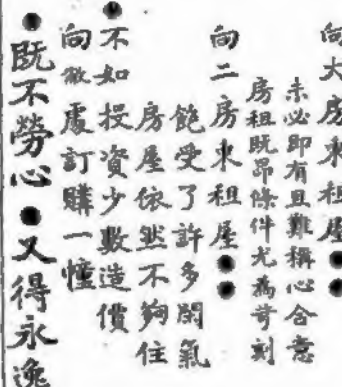 向大房東租屋●●
未必即有且難稱心合意
房租既昂條件尤為苛刻
向二房東租屋●●
飽受了許多閒氣
房屋依然不夠住
●不如投資少數造價
向敝處訂購一幢
●既不勞心●又得永逸